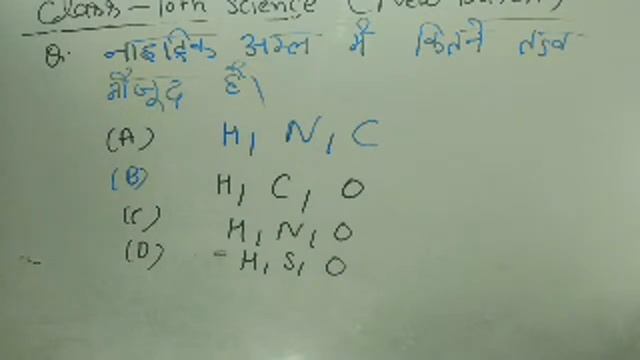 Class-10th Science (New
Q. नाइट्रिक अम्ल में कितने तत्व
मौजूद हैं।
(A) H, N, C
(B) H, C, O
(C) H, N, O
(D) H, S, O